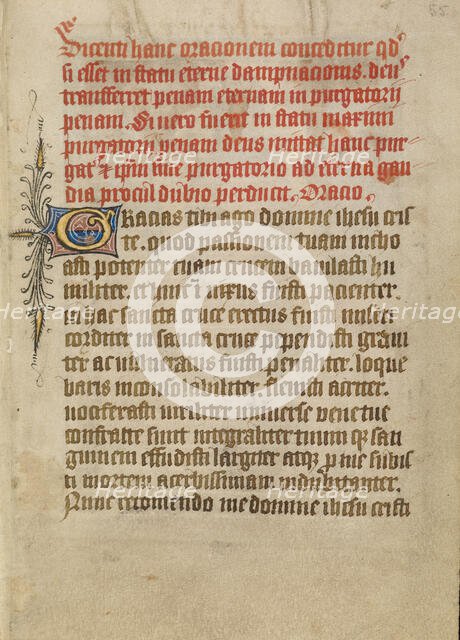 55.
Dicenti hanc oracionem conceditur qd
si esset in statu eterne dampnacionis. deu
transferret penam eternam in purgatorij
penam. Si uero fuerit in statu maximi
purgatorij penam deus mutat hanc pur
gat & ipm sine purgatorio ad eterna gau
dia procul dubio perducit. Oracio.
GRacias tibi ago domine ihesu cris
te. quod passionem tuam incho
asti potenter tuam crucem baiulasti hu
militer. et in ea fixus fuisti pacienter.
in hac sancta cruce erectus fuisti miseri
corditer in sancta cruce pependisti graui
ter ac uulneratus fuisti penaliter. loque
baris inconsolabiliter. fleuisti acriter.
uociferasti uiriliter uniuerse uene tue
confracte sunt integraliter tuum sanguinem
effudisti largiter atqz pro me subis
ti mortem acerbissimam indubitanter.
Nunc recomendo me domine ihesu cristi